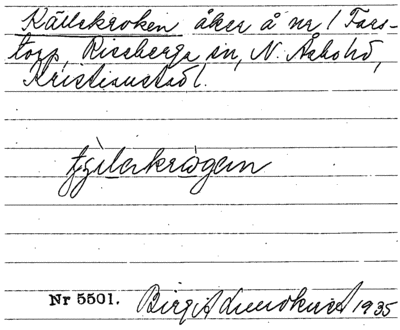 Källekroken åker å nr 1 Fars-
torp, Riseberga sn, N. Åsbo hd,
Kristianstads l.
Nr 5501. Birgit Lundkvist 1935